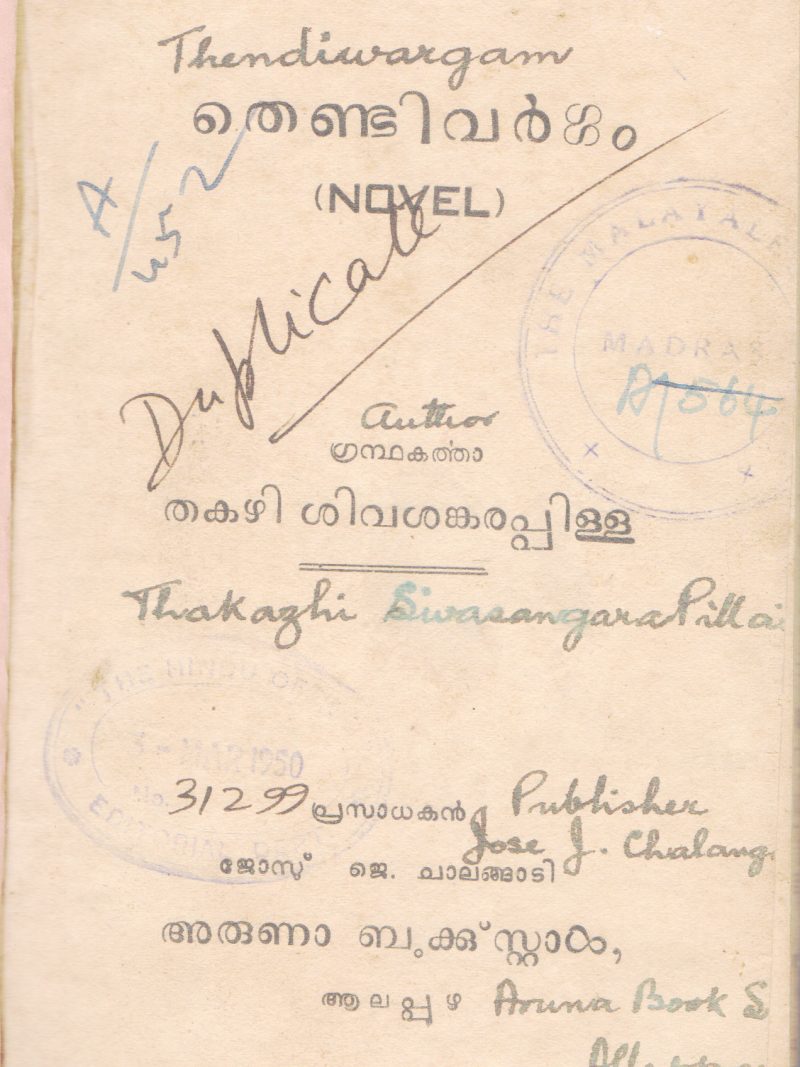 Thendiwargam
തെണ്ടിവർഗ്ഗം
A/452
(NOVEL)
Duplicate
THE MALAYAL
MADRAS
A/564
Author
ഗ്രന്ഥകർത്താ
തകഴി ശിവശങ്കരപ്പിള്ള
Thakazhi Sivasangara Pillai
"THE HINDU OF
MAR 1950
No. 31299
EDITORIAL
പ്രസാധകൻ Publisher
Jose J. Chalang
ജോസ് ജെ. ചാലങ്ങാടി
അരുണാ ബുക്കുസ്റ്റാൾ,
ആലപ്പുഴ Aruna Book S